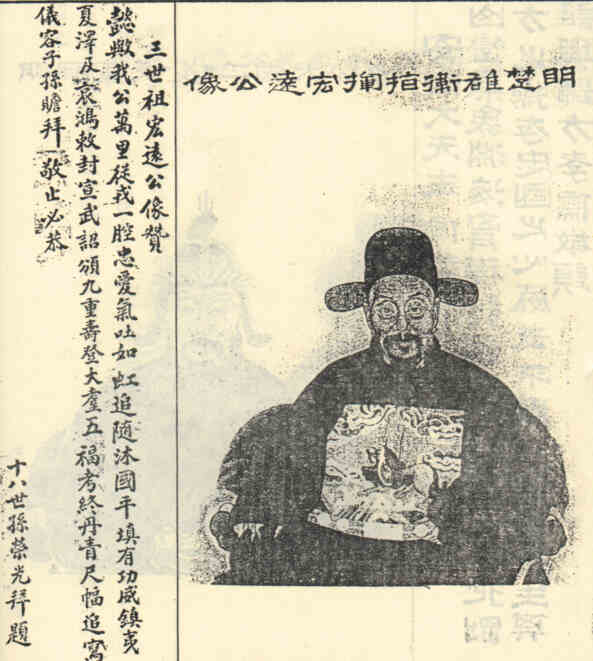 明楚雄衛指揮宏遠公像
三世祖宏遠公像贊
懿歟我公萬里從戎一腔忠愛氣吐如虹追隨沐國平填有功威鎮夷
夏澤及哀鴻敕封宣武詔頒九重壽登大耋五福考終丹青尺幅追寫
儀容子孫瞻拜敬止必恭
十八世孫榮光拜題